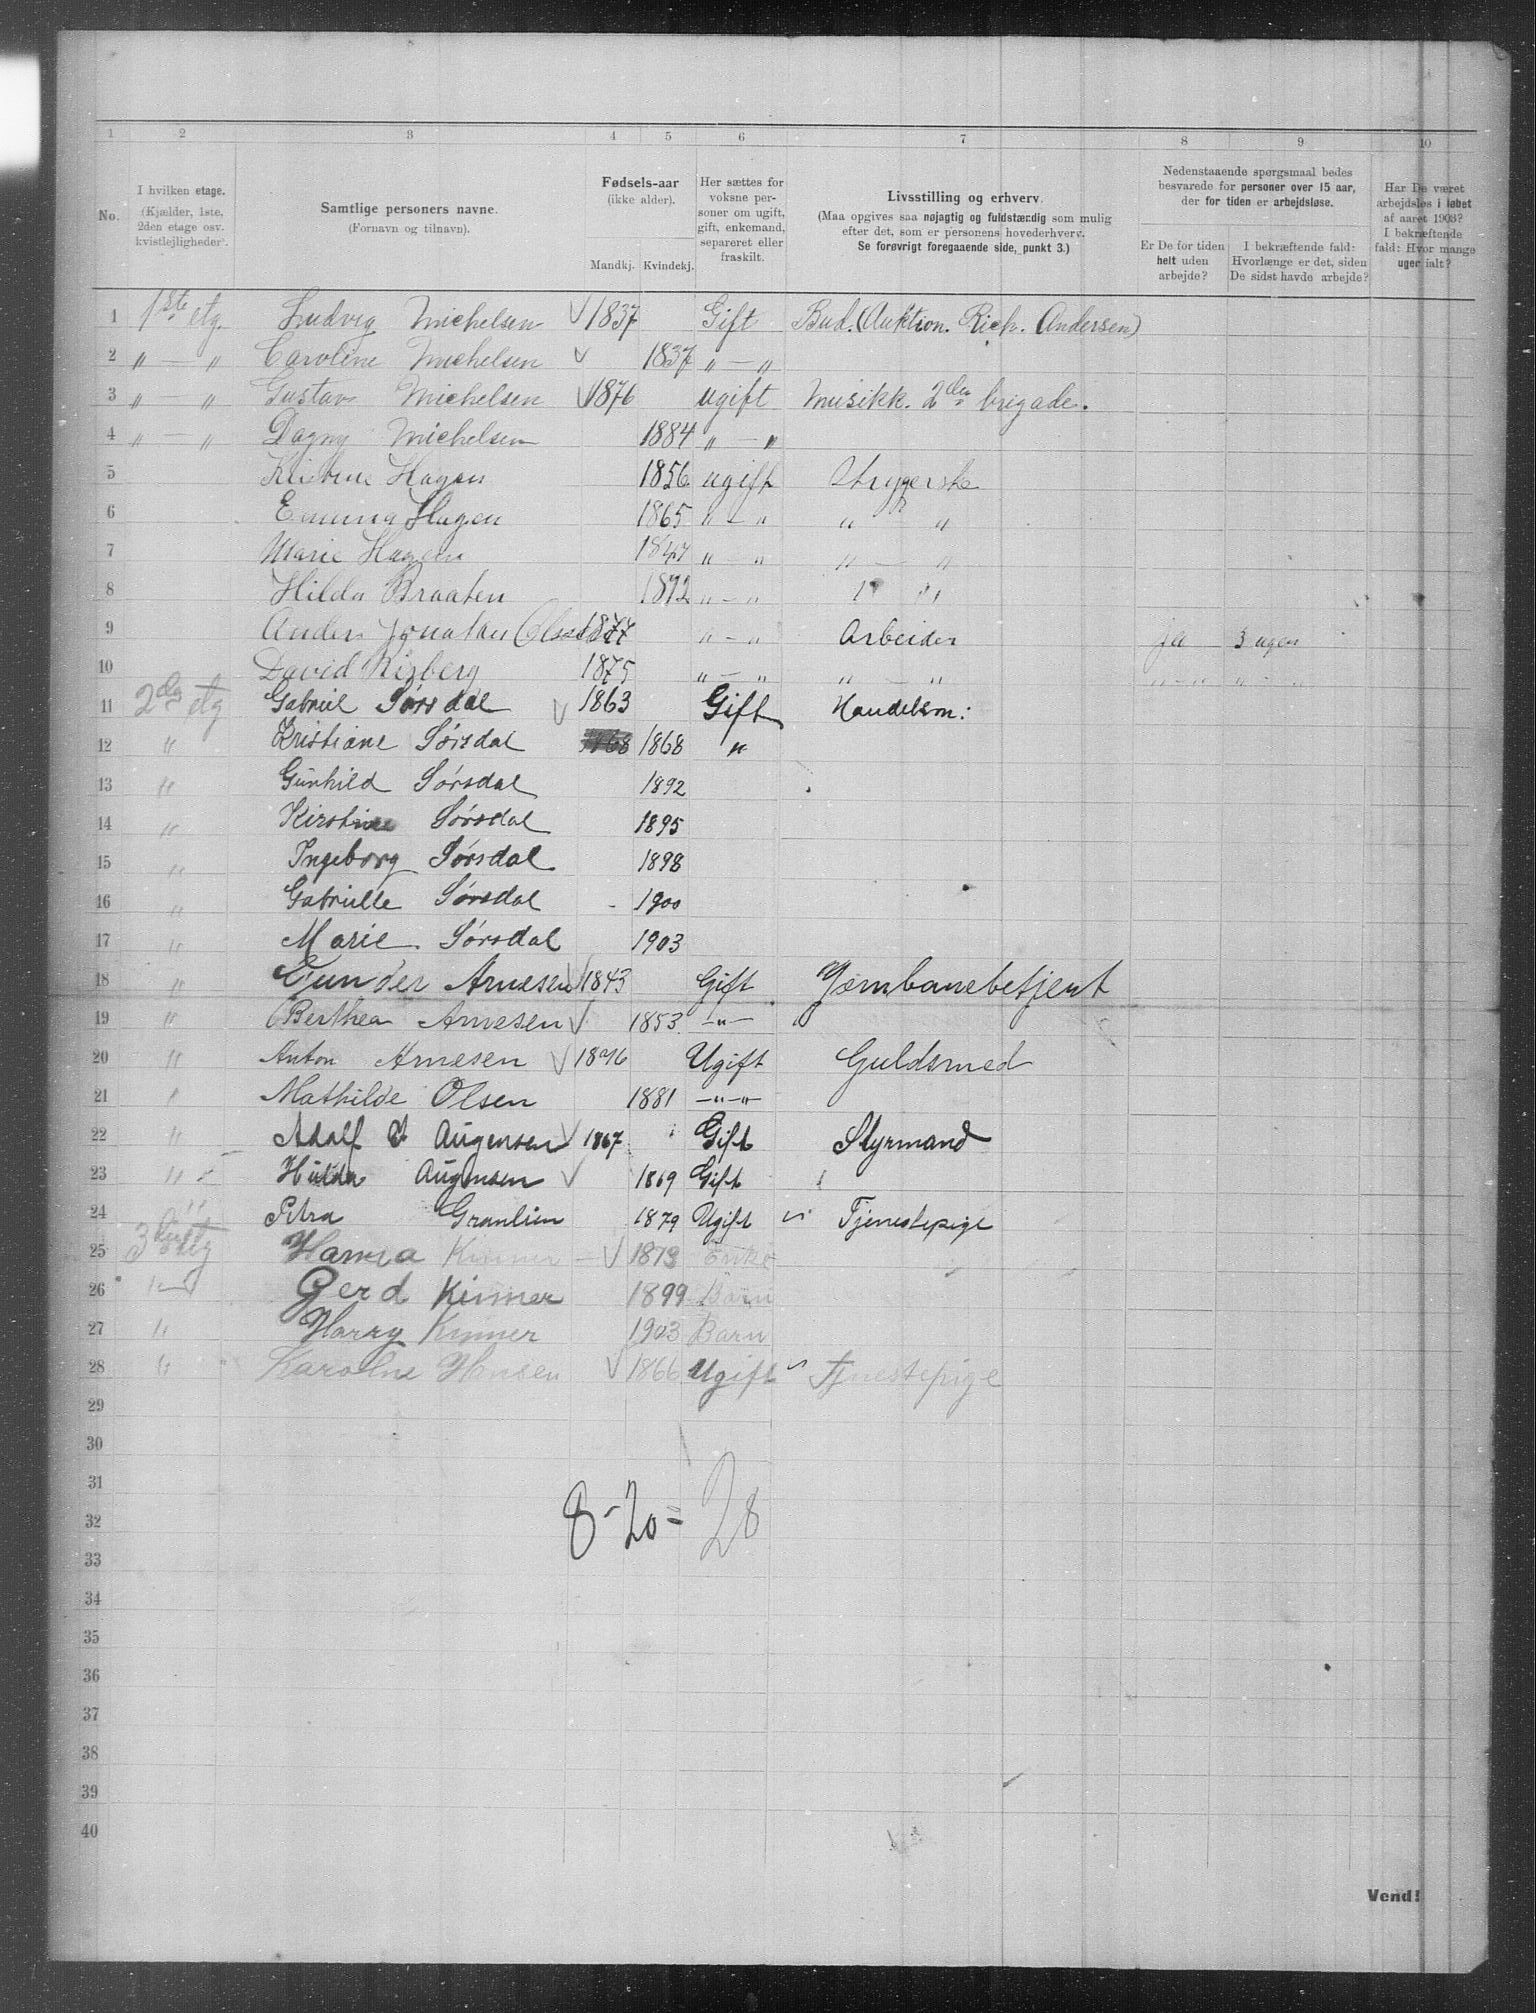 1 2 3 4 5 6 7 8 9 10
No.
I hvilken etage.
(Kjælder, 1ste,
2den etage osv.
kvistlejligheder).
Samtlige personers navne.
(Fornavn og tilnavn).
Fødsels-aar
(ikke alder).
Mandkj. Kvindekj.
Her sættes for
voksne per-
soner om ugift,
gift, enkemand,
separeret eller
fraskilt.
Livsstilling og erhverv.
(Maa opgives saa nøjagtig og fuldstændig som mulig
efter det, som er personens hovederhverv.
Se forøvrigt foregaaende side, punkt 3.)
Nedenstaaende spørgsmaal bedes
besvarede for personer over 15 aar,
der for tiden er arbejdsløse.
Er De for tiden
helt uden
arbejde?
I bekræftende fald:
Hvorlænge er det, siden
De sidst havde arbejde?
Har De været
arbejdsløs i løbet
af aaret 1903?
I bekræftende
fald: Hvor mange
uger ialt?
1 1ste etg. Ludvig Michelsen √ 1837 Gift Bud. (Auktion. Rich. Andersen)
2 " — " Caroline Michelsen √ 1837 " — "
3 " — " Gustav Michelsen √ 1876 ugift Musikk. 2den brigade.
4 " — " Dagny Michelsen 1884 " — "
5 Kristine Hagen 1856 ugift Strygerske
6 Emma Hagen 1865 " — " " "
7 Marie Hagen 1847 " — " " — "
8 Hilda Braaten 1872 " — " " "
9 Anders Jonathan Olsen 1877 " — " Arbeider ja 3 uger
10 David Risberg 1875 " — " " — " " — " " — "
11 2den etg Gabriel Sørsdal √ 1863 Gift Handelsm:
12 " Kristiane Sørsdal 1868 1868 "
13 " Gunhild Sørsdal 1892
14 " Kirstine Sørsdal 1895
15 " Ingeborg Sørsdal 1898
16 " Gabrielle Sørsdal 1900
17 " Marie Sørsdal 1903
18 " Gunder Arnesen √ 1843 Gift Jernbanebetjent
19 " Berthea Arnesen √ 1853 — " —
20 " Anton Arnesen √ 1876 Ugift Guldsmed
21 " Mathilde Olsen 1881 — " — " —
22 " Adolf Augensen √ 1867 Gift Styrmand
23 " Hulda Augensen √ 1869 Gift
24 " Petra Granlien 1879 Ugift Tjenestepige
25 3die etg Hanna Kinner √ 1873 Enke
26 " Gerd Kinner 1899 Barn
27 " Harry Kinner 1903 Barn
28 " Karoline Hansen √ 1866 Ugift Tjenestepige
29
30
31
32 8 - 20 = 28
33
34
35
36
37
38
39
40
Vend!